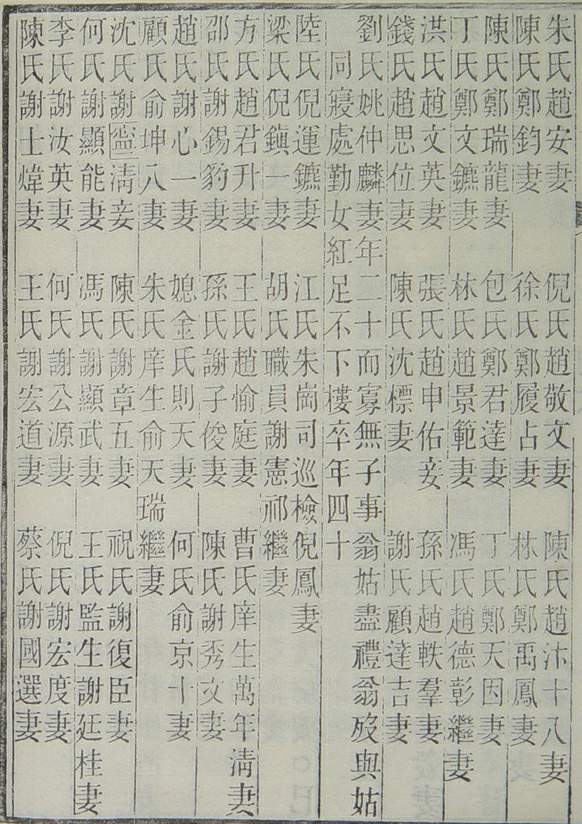 朱氏趙安妻　倪氏趙敬文妻　陳氏趙汴十八妻
陳氏鄭鈞妻　徐氏鄭履占妻　林氏鄭禹鳳妻
陳氏鄭瑞龍妻　包氏鄭君達妻　丁氏鄭天因妻
丁氏鄭文鑣妻　林氏趙景範妻　馮氏趙德彰繼妻
洪氏趙文英妻　張氏趙申佑妾　孫氏趙軼羣妻
錢氏趙思位妻　陳氏沈標妻　謝氏顧達吉妻
劉氏姚仲麟妻年二十而寡無子事翁姑盡禮翁歿與姑
同寢處勤女紅足不下樓卒年四十
陸氏倪運鑣妻　江氏朱崗司巡檢倪鳳妻
梁氏倪鎮一妻　胡氏職員謝憲祁繼妻
方氏趙君升妻　王氏趙愉庭妻　曹氏庠生萬年清妻
邵氏謝錫豹妻　孫氏謝子俊妻　陳氏謝秀文妻
趙氏謝心一妻　媳金氏則天妻　何氏俞京十妻
顧氏俞坤八妻　朱氏庠生俞天瑞繼妻
沈氏謝寧淸妾　陳氏謝章五妻　祝氏謝復臣妻
何氏謝顯能妻　馮氏謝顯武妻　王氏監生謝廷桂妻
李氏謝汝英妻　何氏謝公源妻　倪氏謝宏度妻
陳氏謝士煒妻　王氏謝宏道妻　蔡氏謝國選妻